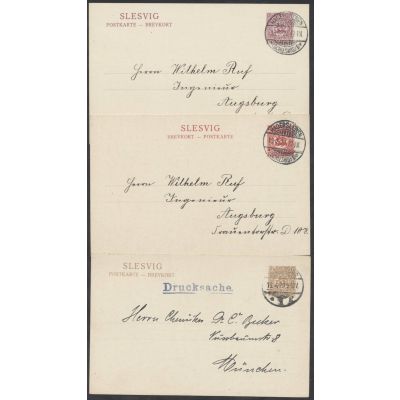 SLESVIG
POSTKARTE — BREVKORT
Herrn Wilhelm Ruf
Ingenieur
Augsburg
SLESVIG
BREVKORT — POSTKARTE
Herrn Wilhelm Ruf
Ingenieur
Augsburg
SLESVIG
POSTKARTE — BREVKORT
Drucksache.
Herrn Chemiker Dr. C. Becker
Nussbaumstr 8
München.